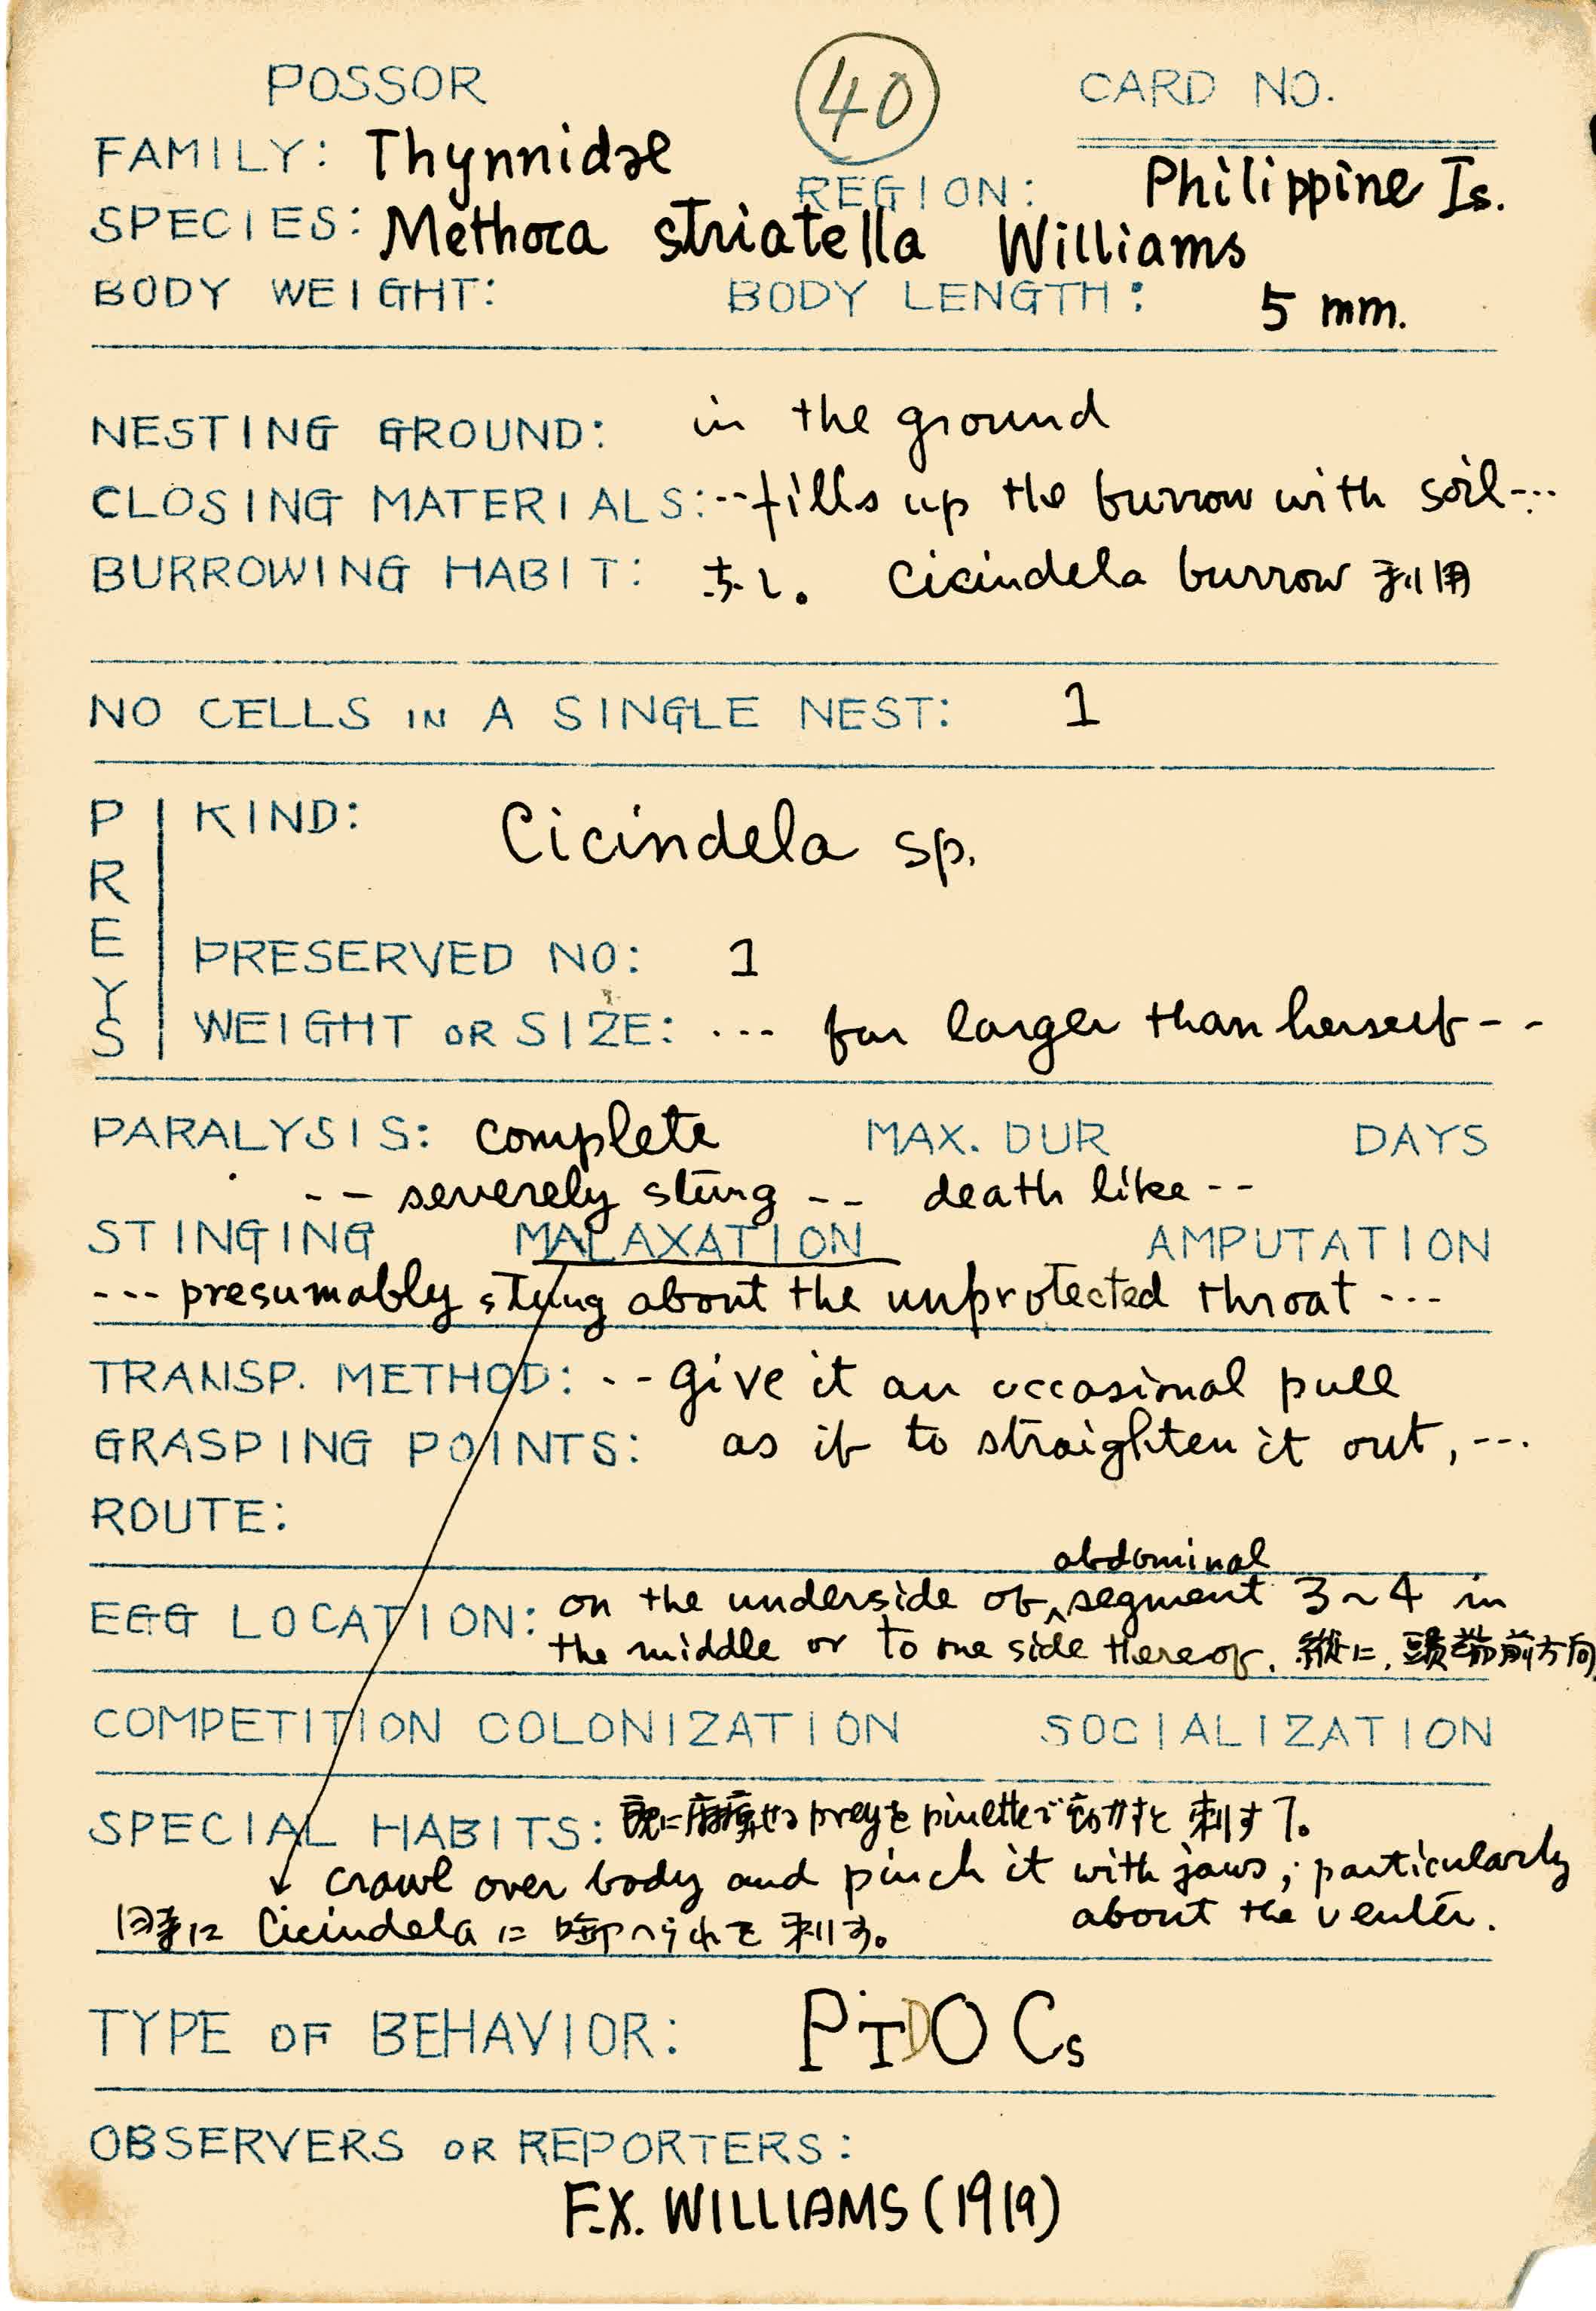 POSSOR
40
CARD NO.
FAMILY: Thynnidae
REGION: Philippine Is.
SPECIES: Methoca striatella Williams
BODY WEIGHT: BODY LENGTH: 5 mm.
NESTING GROUND: in the ground
CLOSING MATERIALS: -- fills up the burrow with soil ---
BURROWING HABIT: なし。 Cicindela burrow 利用
NO CELLS IN A SINGLE NEST: 1
PREYS
KIND: Cicindela sp.
PRESERVED NO: 1
WEIGHT OR SIZE: --- far larger than herself --
PARALYSIS: complete MAX. DUR DAYS
-- severely stung -- death like --
STINGING MALAXATION AMPUTATION
--- presumably stung about the unprotected throat ---
TRANSP. METHOD: -- give it an occasional pull
GRASPING POINTS: as if to straighten it out, ---
ROUTE:
abdominal
EGG LOCATION: on the underside of segment 3~4 in
the middle or to one side thereof. 縦に, 頭端前方向
COMPETITION COLONIZATION SOCIALIZATION
SPECIAL HABITS: 既に麻痺せる preyを で動かすと 刺す
crawl over body and pinch it with jaws; particularly
about the venter.
同時に Cicindela に 刺す。
TYPE OF BEHAVIOR: PTDOCs
OBSERVERS OR REPORTERS:
F.X. WILLIAMS (1919)